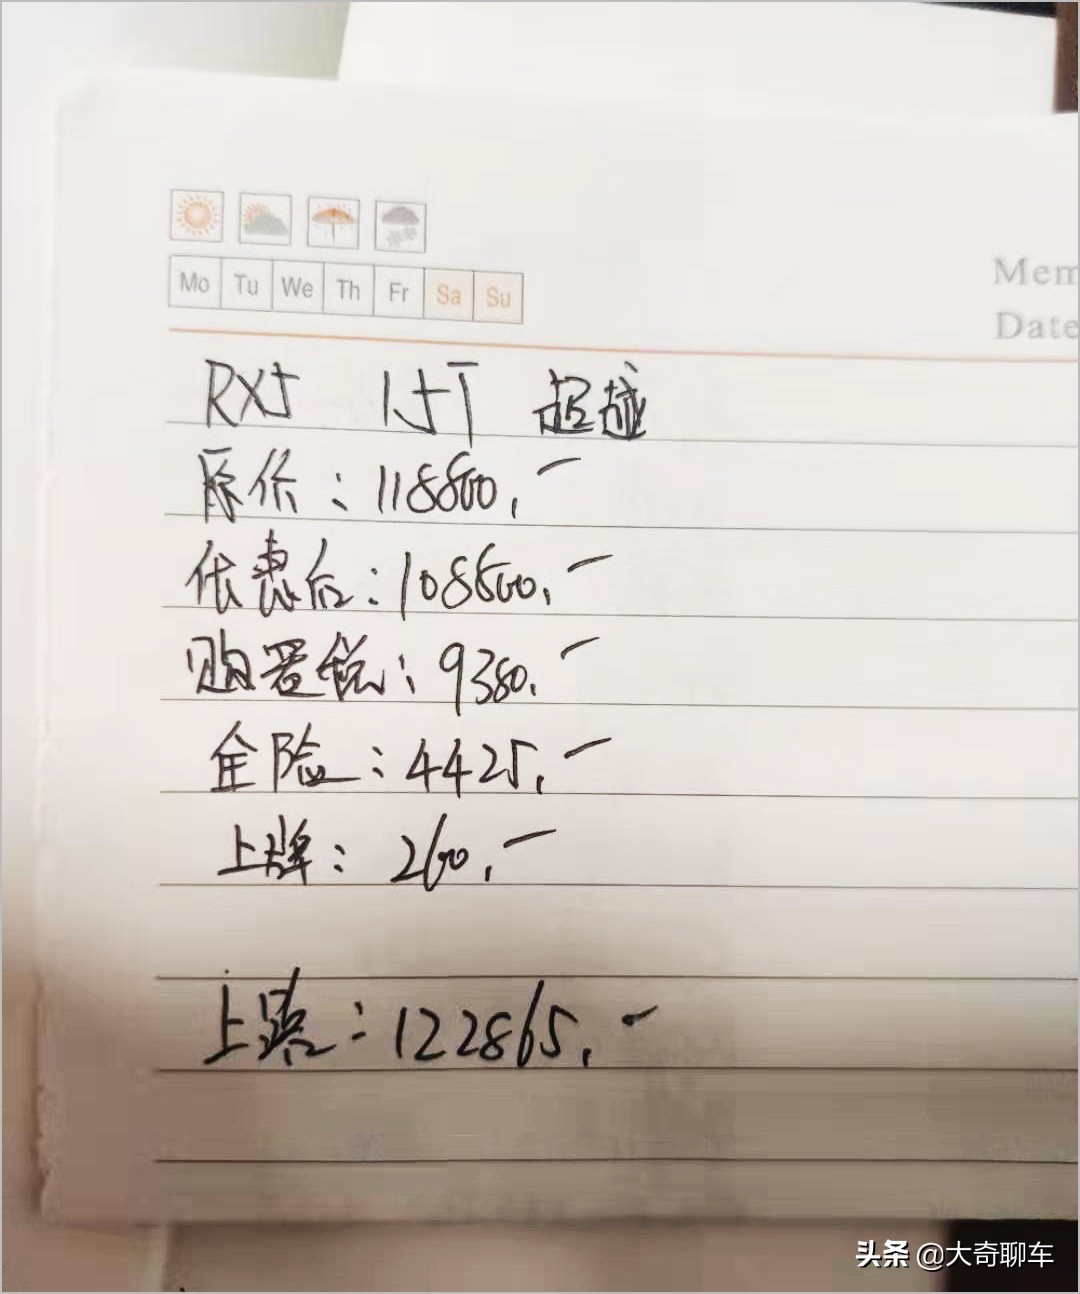 Mo Tu We Th Fr Sa Su
Mem
Date
RX5 1.5T 超越
原价：118800.-
优惠后：108800.-
购置税：9380.-
全险：4425.-
上牌：260.-
上路：122865.-
头条 @大奇聊车